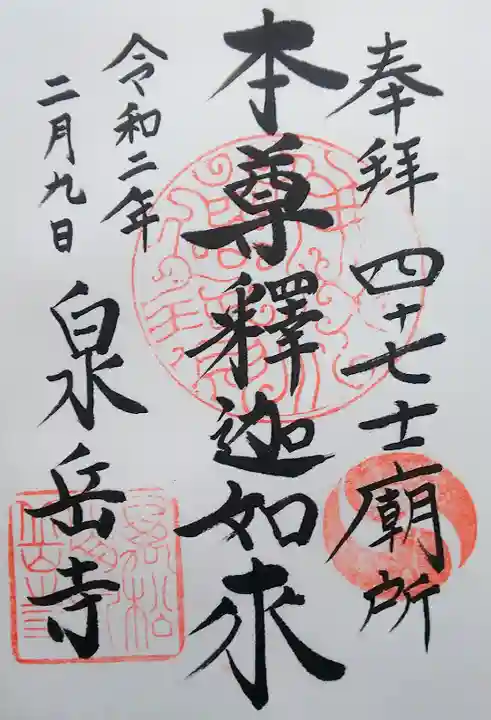 奉拝 四十七士廟所
本尊釋迦如来
令和二年
二月九日
泉岳寺